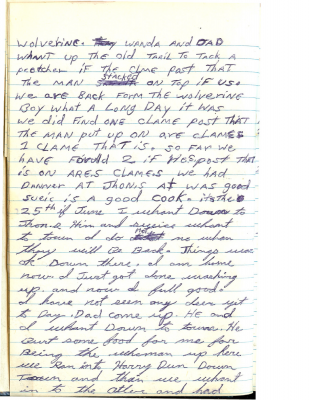 wolverine. Wanda and DAD
whant up the old Trail To Tack a
pretcher if The Clme post That
The man stacked on Top if us.
we are Back form The wolverine
Boy what A Long Day it was
we did find one Clame post That
The man put up on are clames
1 clame That is. so far we
have fould 2 if His post That
is on ares clames we had
Danner at Jhon.s it was good
sueie is a good cook. its the
25th if June I whant Down to
Jhon.s Him and sueie whant
to town I do not me when
they will Be Back. Things was
ok Down there. I am home
now. I Just got done washing
up. and now I full good.
I have not seen any deer yet
to Day. Dad come up. HE and
I whant Down to town. He
some food for me for
Being the up here
we Ran into Harry Dun Down
Town and than we whant
in to the and had